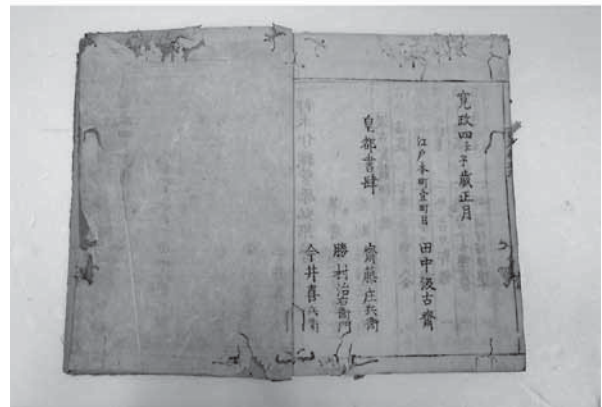 寛政四壬子歳正月
江戸本町壹町目 田中汲古齋
皇都書肆 齋藤庄兵衛
勝村治右衛門
今井喜兵衛